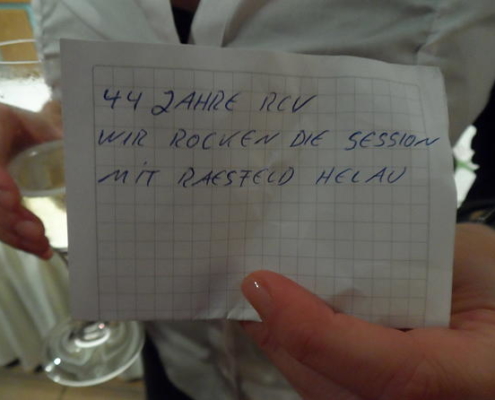 44 JAHRE RCV
WIR ROCKEN DIE SESSION
MIT RAESFELD HELAU